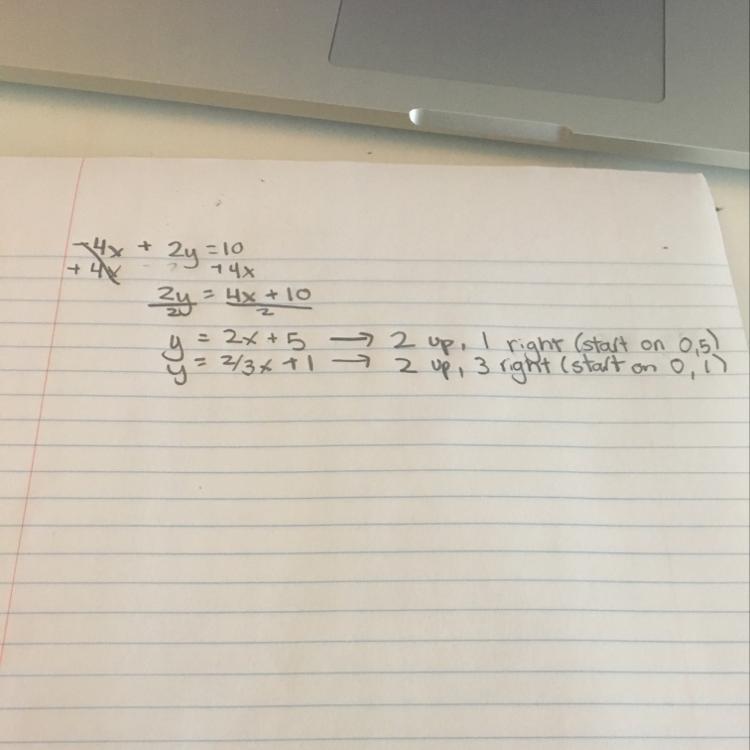 -4x + 2y = 10
+4x +4x
2y = 4x + 10
2 2
y = 2x + 5 → 2 up, 1 right (start on 0,5)
y = 2/3x + 1 → 2 up, 3 right (start on 0,1)